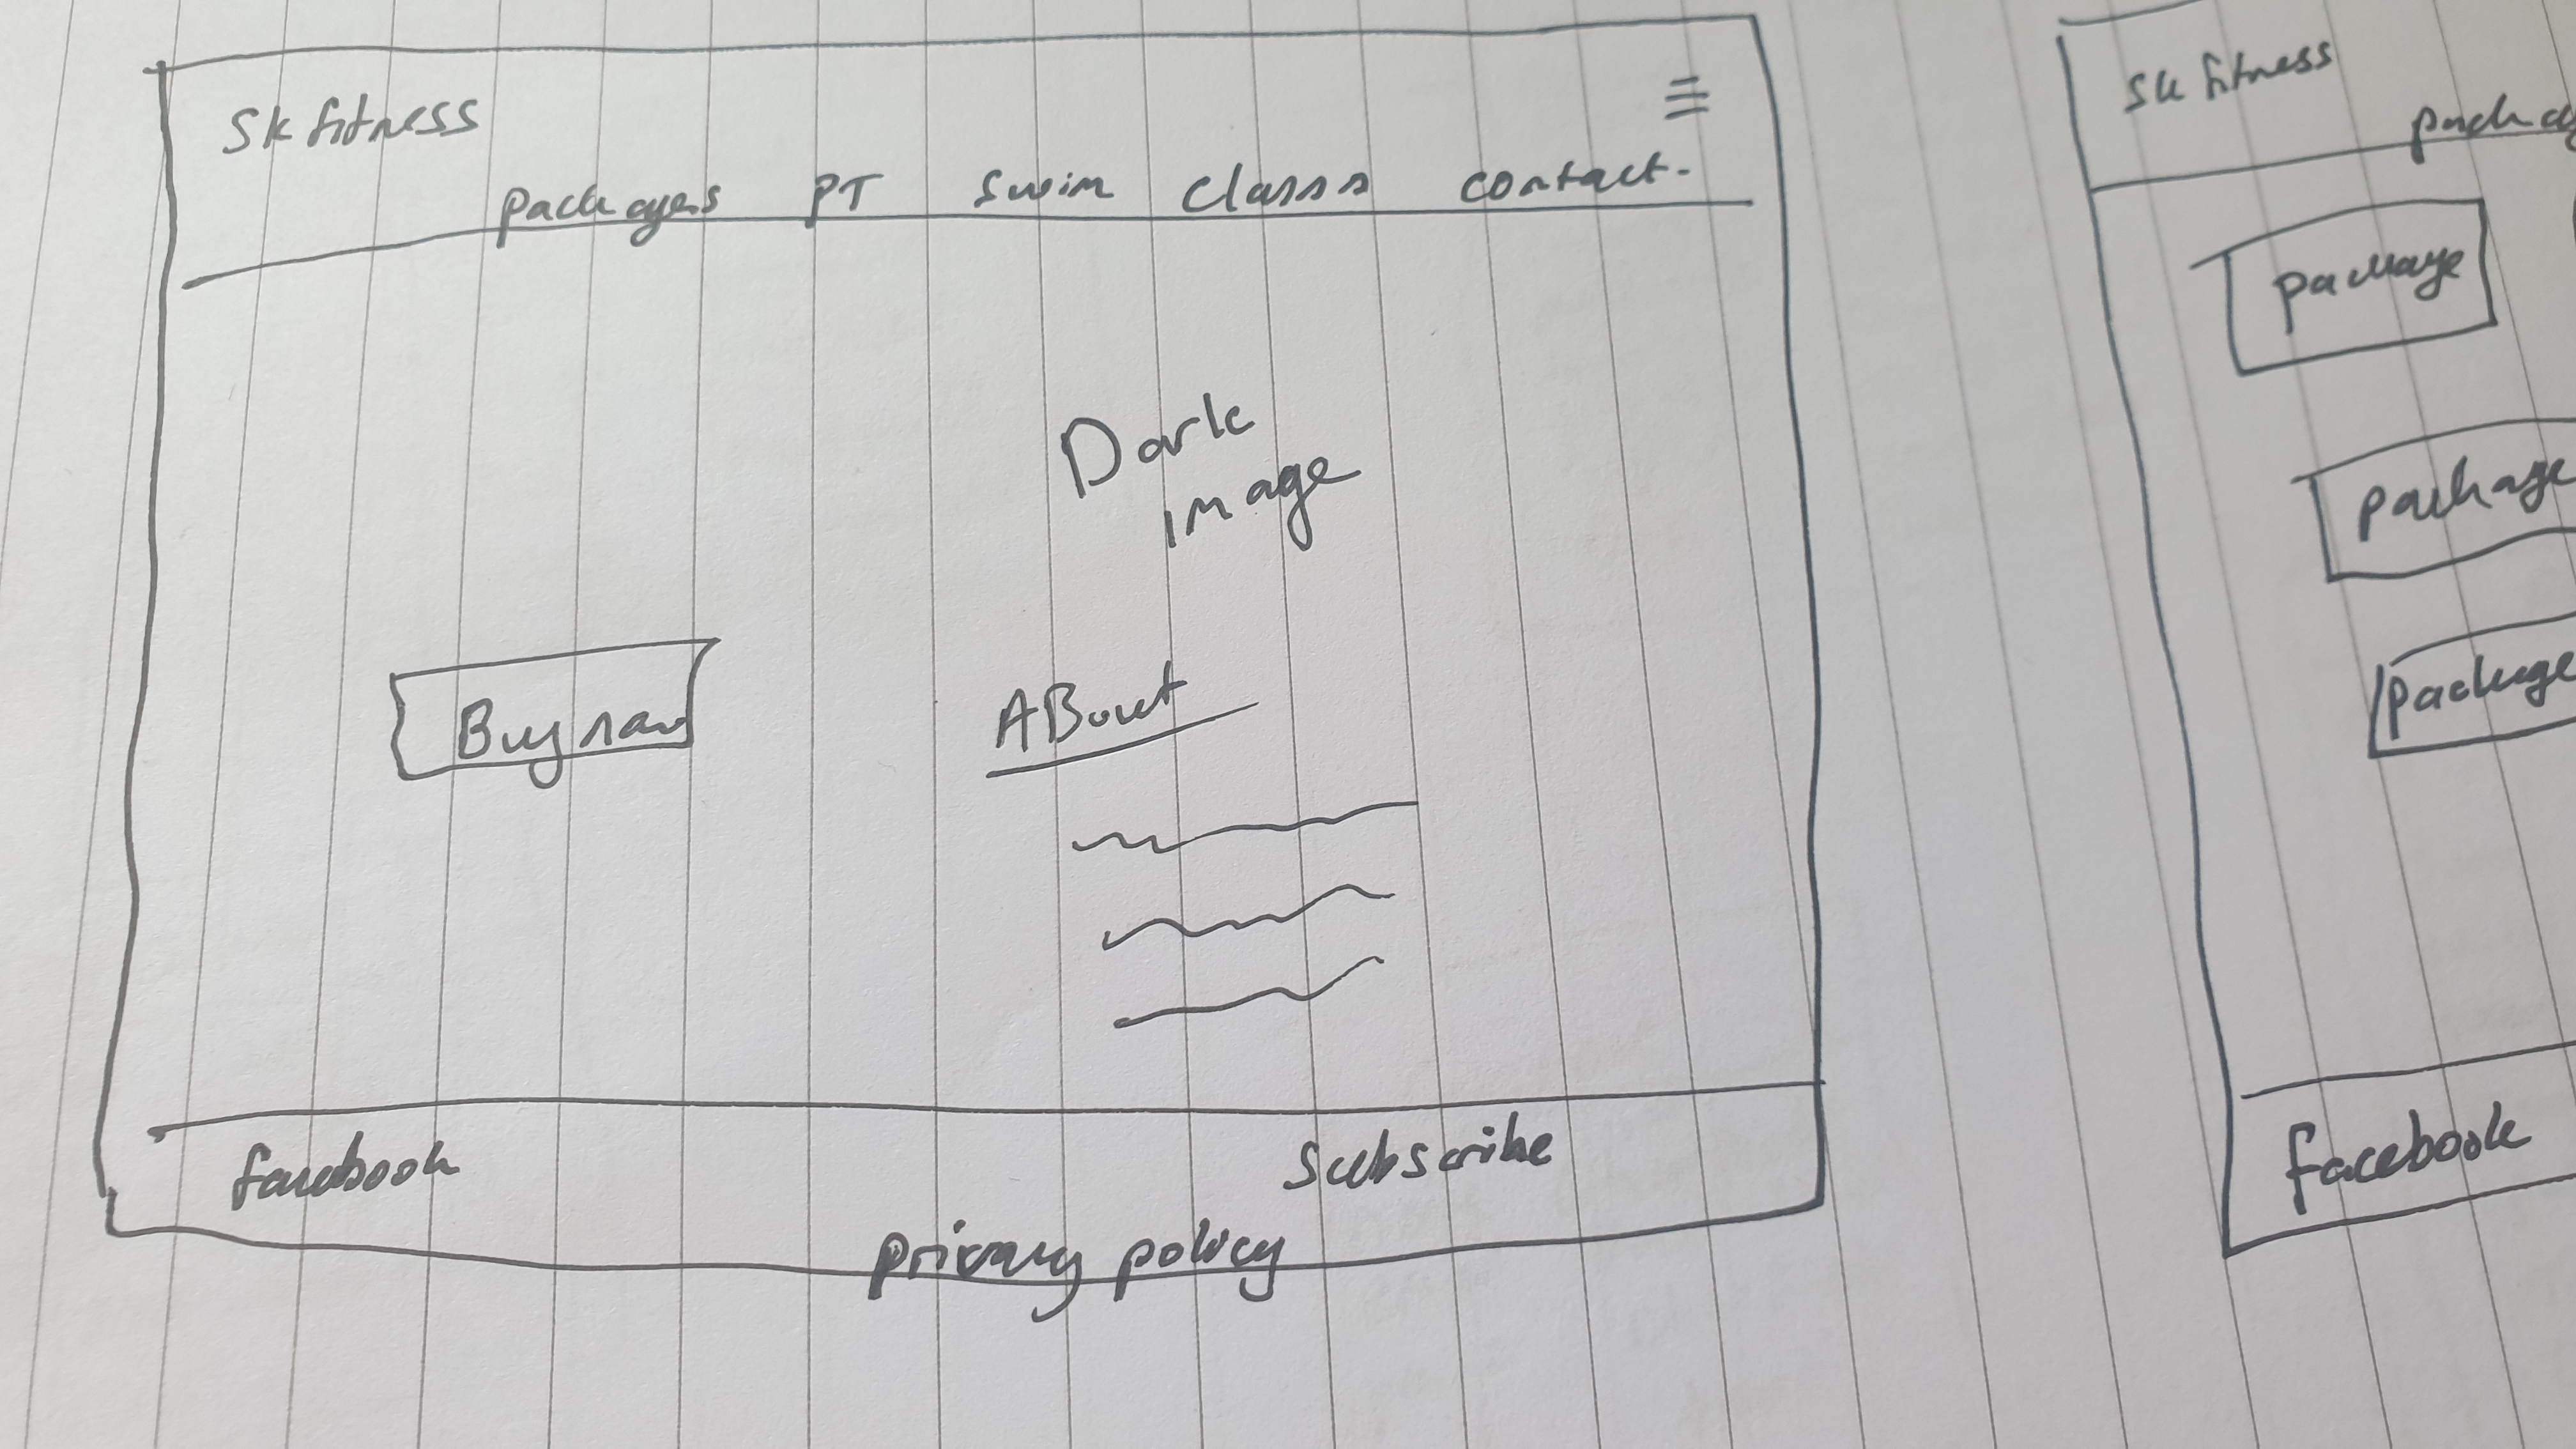 SK fitness
packages PT Swim Classs contact.
Dark
image
Buy now
ABout
facebook
Subscribe
privacy policy
SK fitness
package
package
package
facebook